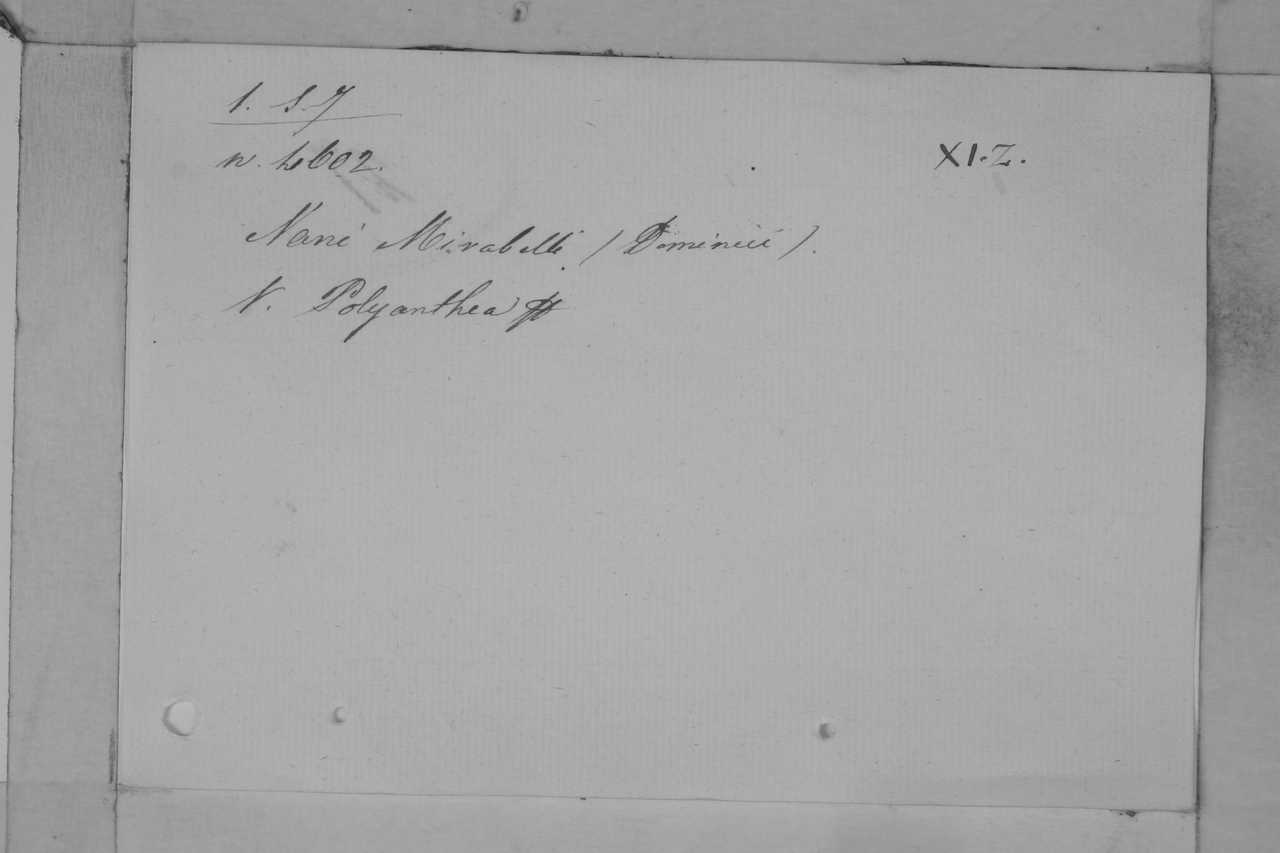 1. S. 7
XI. Z.
n. 4602.
Nani Mirabelli (Dominici).
V. Polyanthea